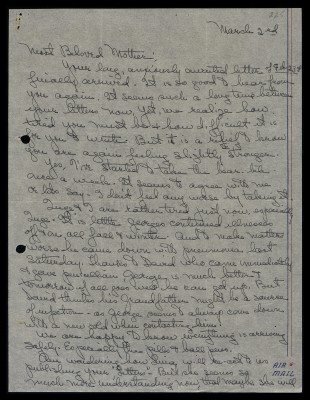 March 2nd
Most Beloved Mother:
Your long, anxiously awaited letter of Feb.
finally arrived. It is so good to hear from
you again. It seems such a long time between
your letters now, yet, we realize how
tired you must be & how difficult it is
for you to write. But it is a relief to know
you are again feeling slightly stronger.
Yes, I've started to take the
once a week. It seems to agree with me
or lets say - I don't feel any worse by taking it.
& I are rather tired just now, especially
. It is little Georges continued illness
of
worse he came down with pneumonia last
Saturday. Thanks to David who came immediately
& gave penicillin George is much better &
tomorrow if all goes well he can get up. But
David thinks his Grandfather might be a source
of infection - as George seems to always come down
with a new cold when contacting him!
We are happy to know everything is arriving
safely. Especially the pills &
Am wondering how will re-act to us
publishing your "letters". But she seems so
much more understanding now that maybe she will
AIR
MAIL